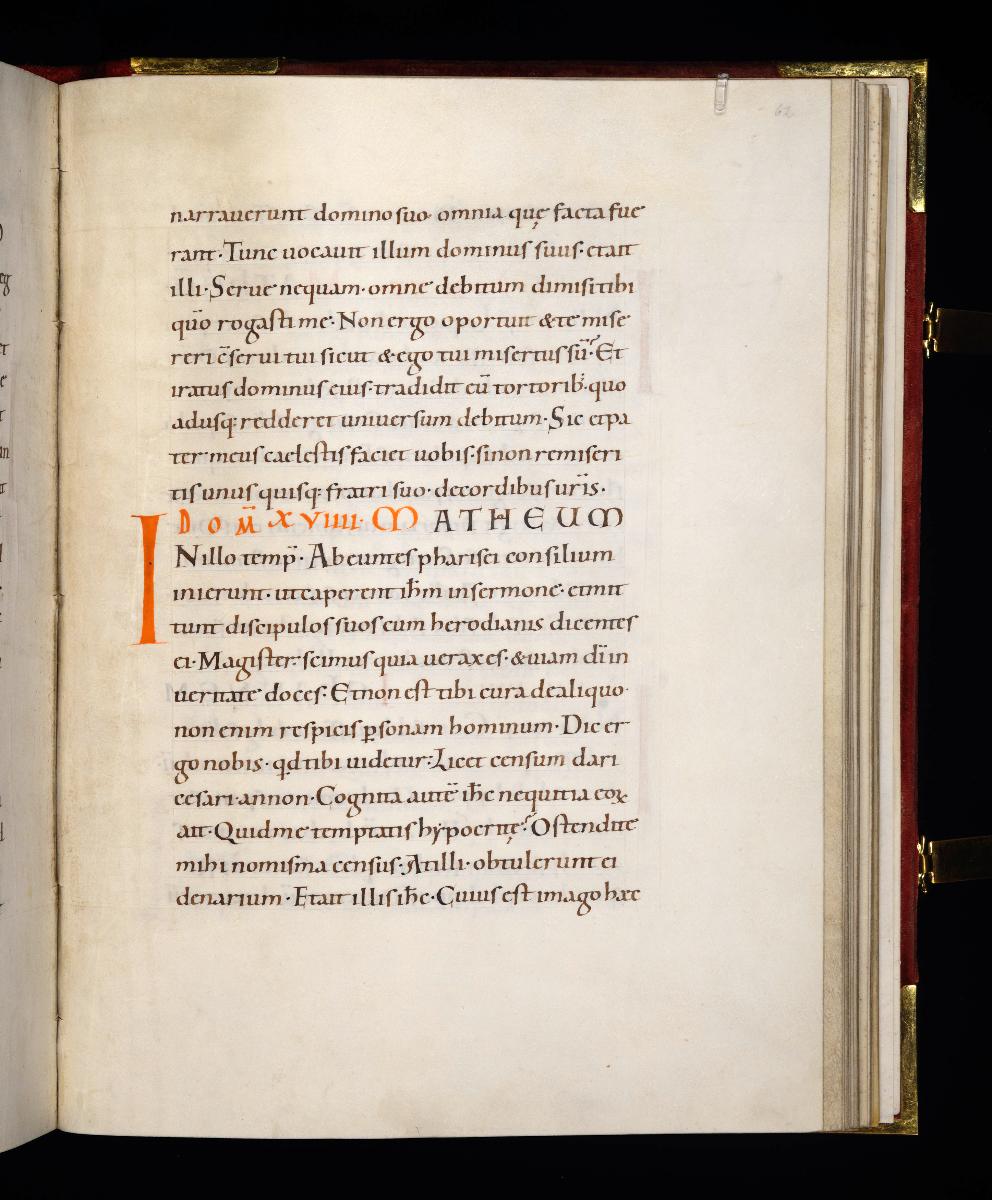 62
narrauerunt domino suo· omnia quę facta fue
rant· Tunc uocauit illum dominus suus· et ait
illi· Serue nequam· omne debitum dimisi tibi
quo rogasti me· Non ergo oportuit & te mise
reri c̄serui tui sicut & ego tui misertus sū· Et
iratus dominus eius· tradidit eū tortorib;· quo
adusq; redderet uniuersum debitum· Sic et pa
ter meus caelestis faciet uobis· si non remiseri
tis unus quisq; fratri suo· de cordibus ur̄is·
DOM̄ XVIIII· MATHEUM
INillo temp̄· Abeuntes pharisei consilium
inierunt· ut caperent ih̄m in sermone· et mit
tunt discipulos suos cum herodianis dicentes
ei· Magister· scimus quia uerax es· & uiam dī in
ueritate doces· Et non est tibi cura de aliquo·
non enim respicis p̱sonam hominum· Dic er
go nobis· qd tibi uidetur· Licet censum dari
cesari· an non· Cognita autē ih̄c nequitia eoꝝ
ait· Quid me temptatis hypocritę· Ostendite
mihi nomisma census· At illi· obtulerunt ei
denarium· Et ait illis ih̄c· Cuius est imago haec